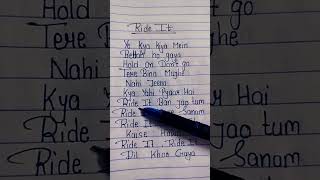 Ride It
Yo Kya Kya Mein
Behad ho gaya
Hold On Don't go
Tere Bina Mujhe
Nahi Jeena
Kya Yahi Pyaar Hai
Ride It Ban jao tum
Ride Sanam
Ride It
Kaise Hava
Ride It, Ride It
Dil Khoo Gaya
Ride jao tum
Ride Sanam